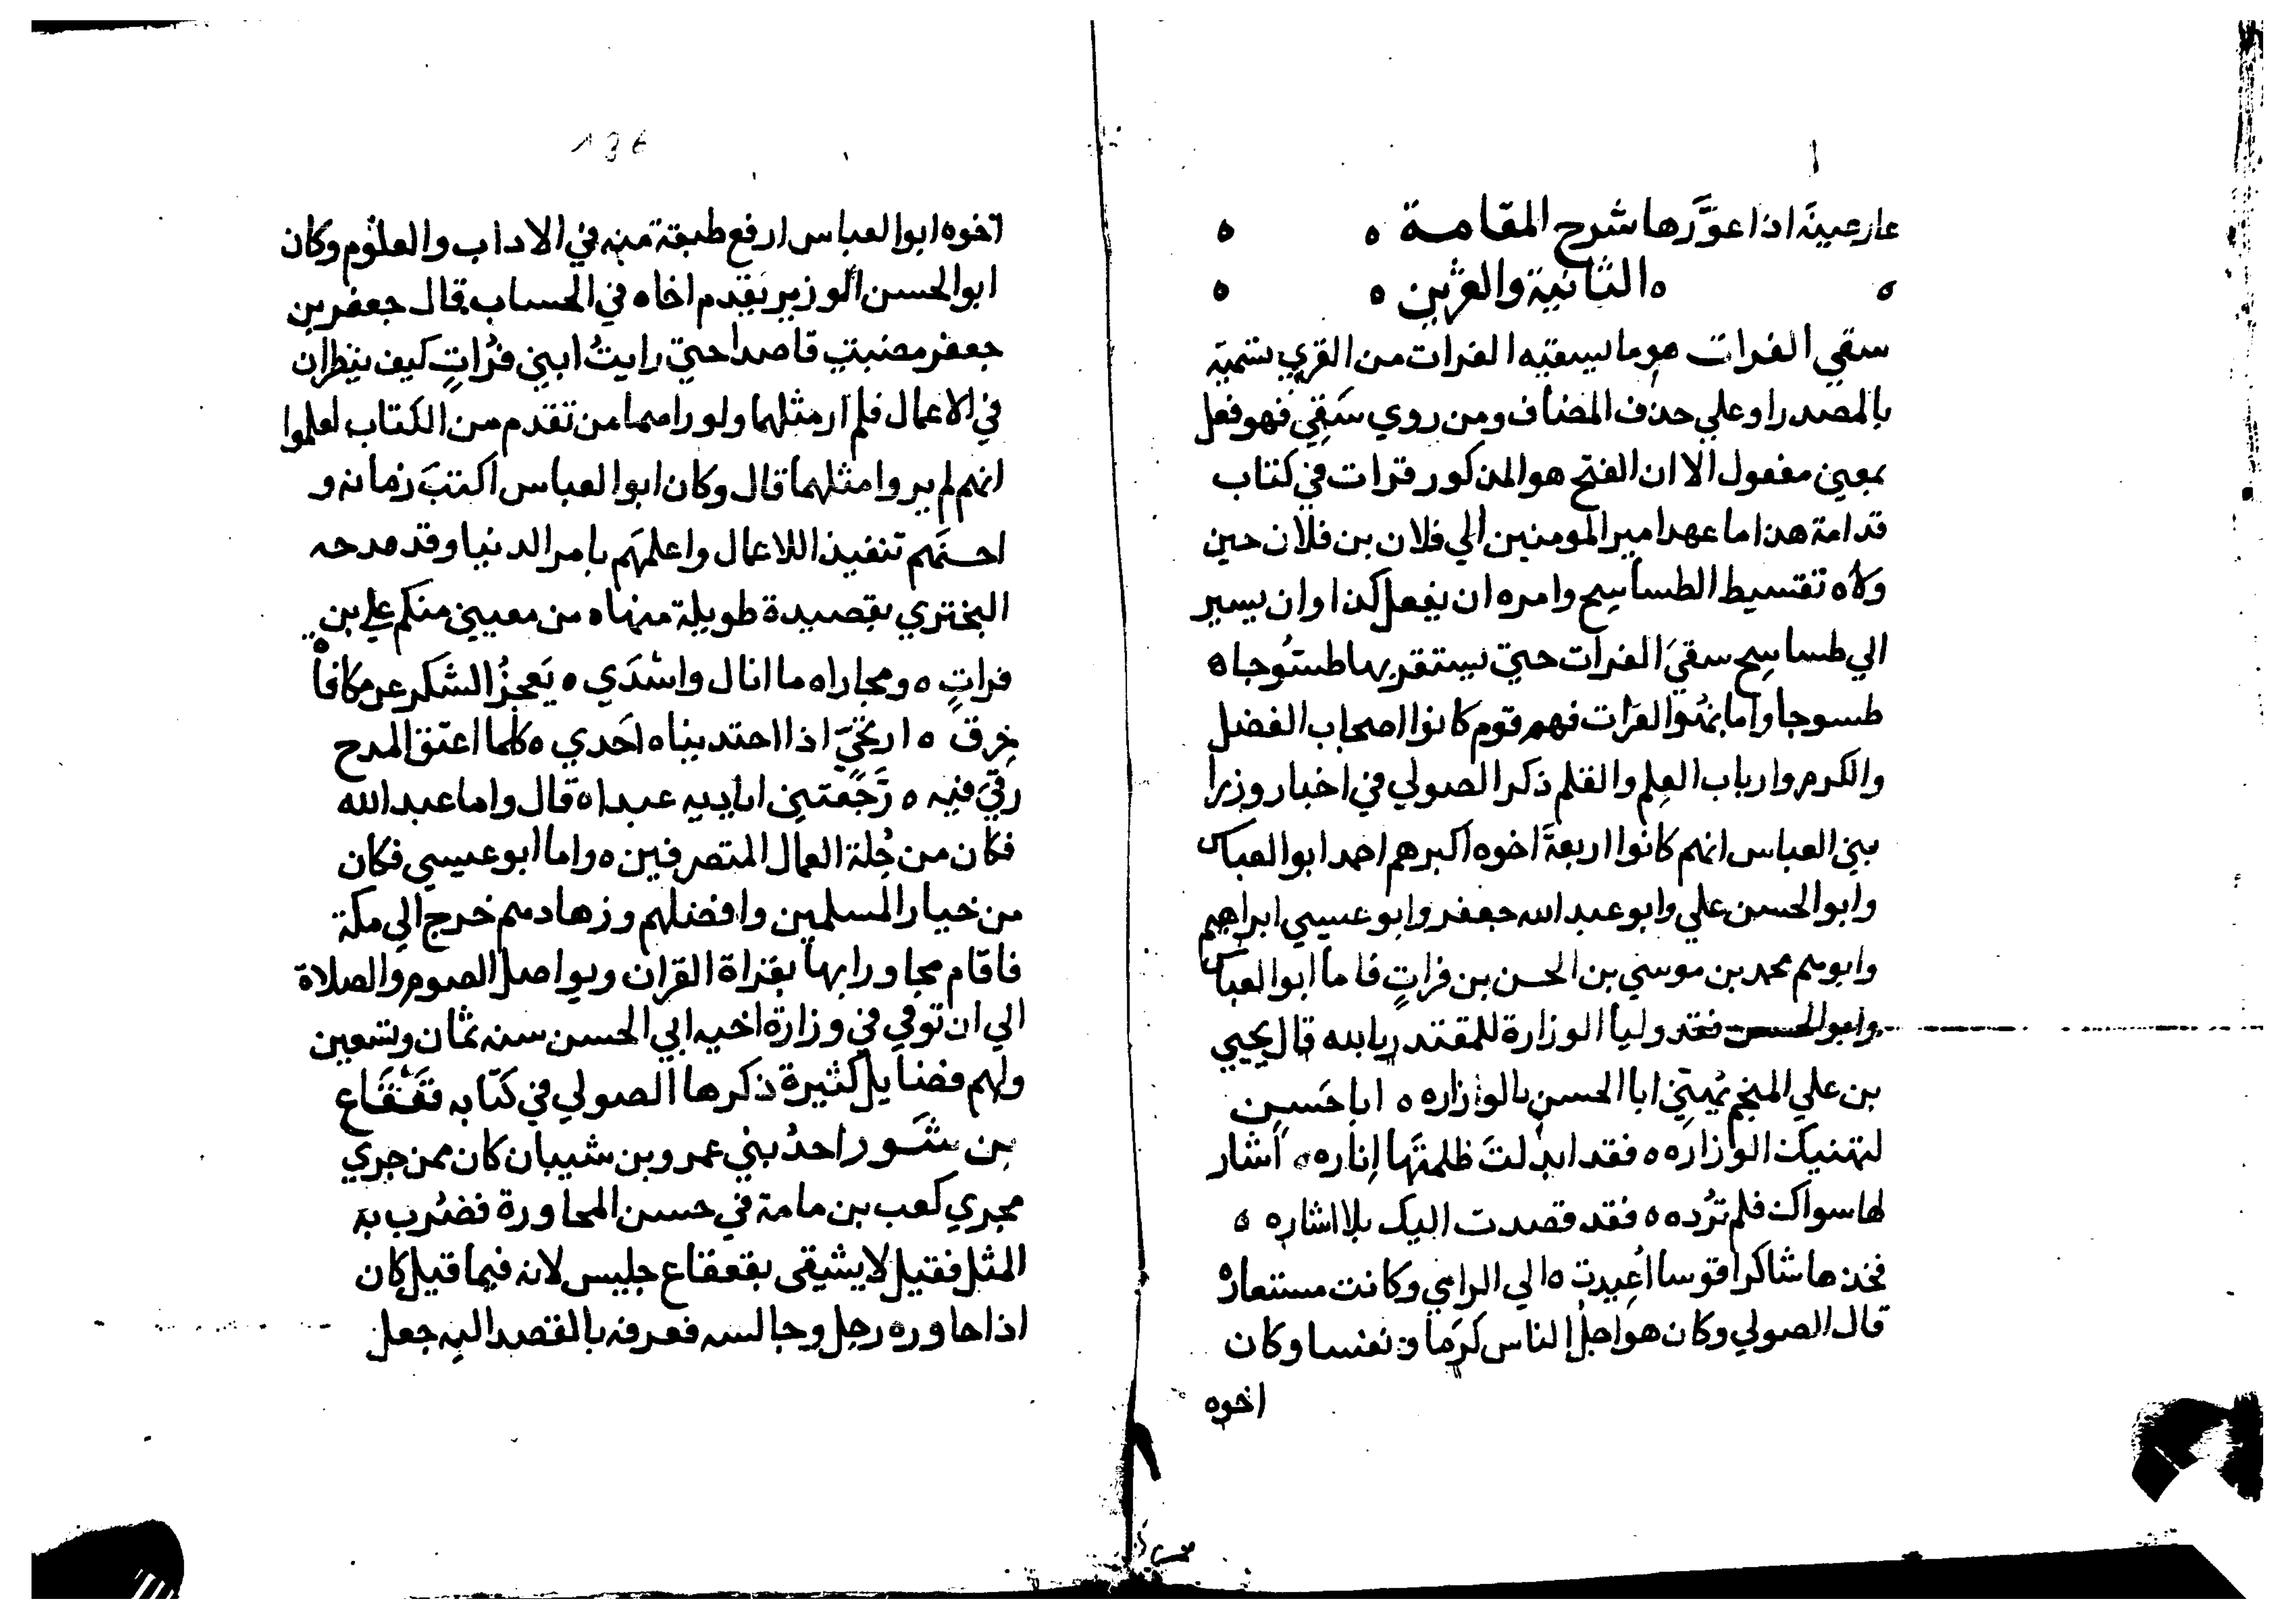 عار عينَه اذا عوَّرها شرح المقامة ه ه
ه ه الثانية والعشرين ه ه
سقي الفرات هو ما يسقيه الفرات من القري تسمية
بالمصدر او علي حذف المضاف ومن روي سَقِيّ فهو فعل
بمعني مفعول الا ان الفتح هو المذكور قرات في كتاب
قدامة هذا ما عهد امير المومنين الي فلان بن فلان حين
ولاه تقسيط الطساسيج وامره ان يفعل كذا وان يسير
الي طساسيج سقيَ الفرات حتي يستقر بها طسّوجا ه
طسوجا واما بنُوا الفرات فهم قوم كانوا اصحاب الفضل
والكرم وارباب العِلم والقلم ذكر الصولي في اخبار وزرا
بني العباس انهم كانوا اربعةَ اخوه اكبرهم احمد ابو العباس
وابو الحسن علي وابو عبد الله جعفر وابو عيسي ابراهيم
وابوهم محمد بن موسي بن الحسن بن فراتٍ فاما ابو العباس
وابو الحسن فقد وليا الوزارة للمقتدر بالله قال يحيي
بن علي المنجم يُهنّي ابا الحسنِ بالوزاره ه ابا حَسَنٍ
لتهنيك الوزاره ه فقد ابدلتَ ظلمتَها اِناره ه اشار
لها سواك فلم تُرده ه فقد قصدت اليك بلا اشاره ه
فخذها شاكرا قوسا اُعِيدت ه الي الرامي وكانت مستعاره
قال الصولي وكان هو اجل الناس كرَما ونفسا وكان
اخوه
اخوه ابو العباس ارفع طبقة منه في الاداب والعلوم وكان
ابو الحسن الوزير يقدم اخاه في الحساب قال جعفر بن
جعفر مضيت قاصدا حتي رايتُ ابني فُراتٍ كيف ينظران
في الاعمال فلم ار مثلهما ولو راهما من تقدم من الكتاب لعلموا
انهم لم يروا مثلهما قال وكان ابو العباس اكتبَ زمانه و
احسنَهم تنفيذا للاعمال واعلمَهم بامر الدنيا وقد مدحه
البختري بقصيدة طويلة منها ه من معيني منكم علي بن
فراتٍ ه ومجاراه ما انال واسْدَي ه يَعجزُ الشكر عن مكافاة
خِرق ه اريَحيّ اذا اجتديناه اَجدي ه كلما اعتق المدح
رقيَ فيه ه رَجَعتني اياديه عبدا ه قال واما عبد الله
فكان من جُلة العمال المتصرفين ه واما ابو عيسي فكان
من خيار المسلمين وافضلهم وزهادهم خرج الي مكة
فاقام مجاورا بها بقراة القران ويواصل الصوم والصلاة
الي ان توفي في وزارة اخيه ابي الحسن سنه ثمان وتسعين
ولهم فضايل كثيرة ذكرها الصولي في كتابه قَعْقَاع
بن شَور احدُ بني عمرو بن شيبان كان ممن جري
مجري كعب بن مامة في حسن المجاورة فضُرب به
المثل فقيل لا يشقى بقعقاع جليس لانه فيما قيل كان
اذا جاوره رجل وجالسه فعرفه بالقصد اليه جعل